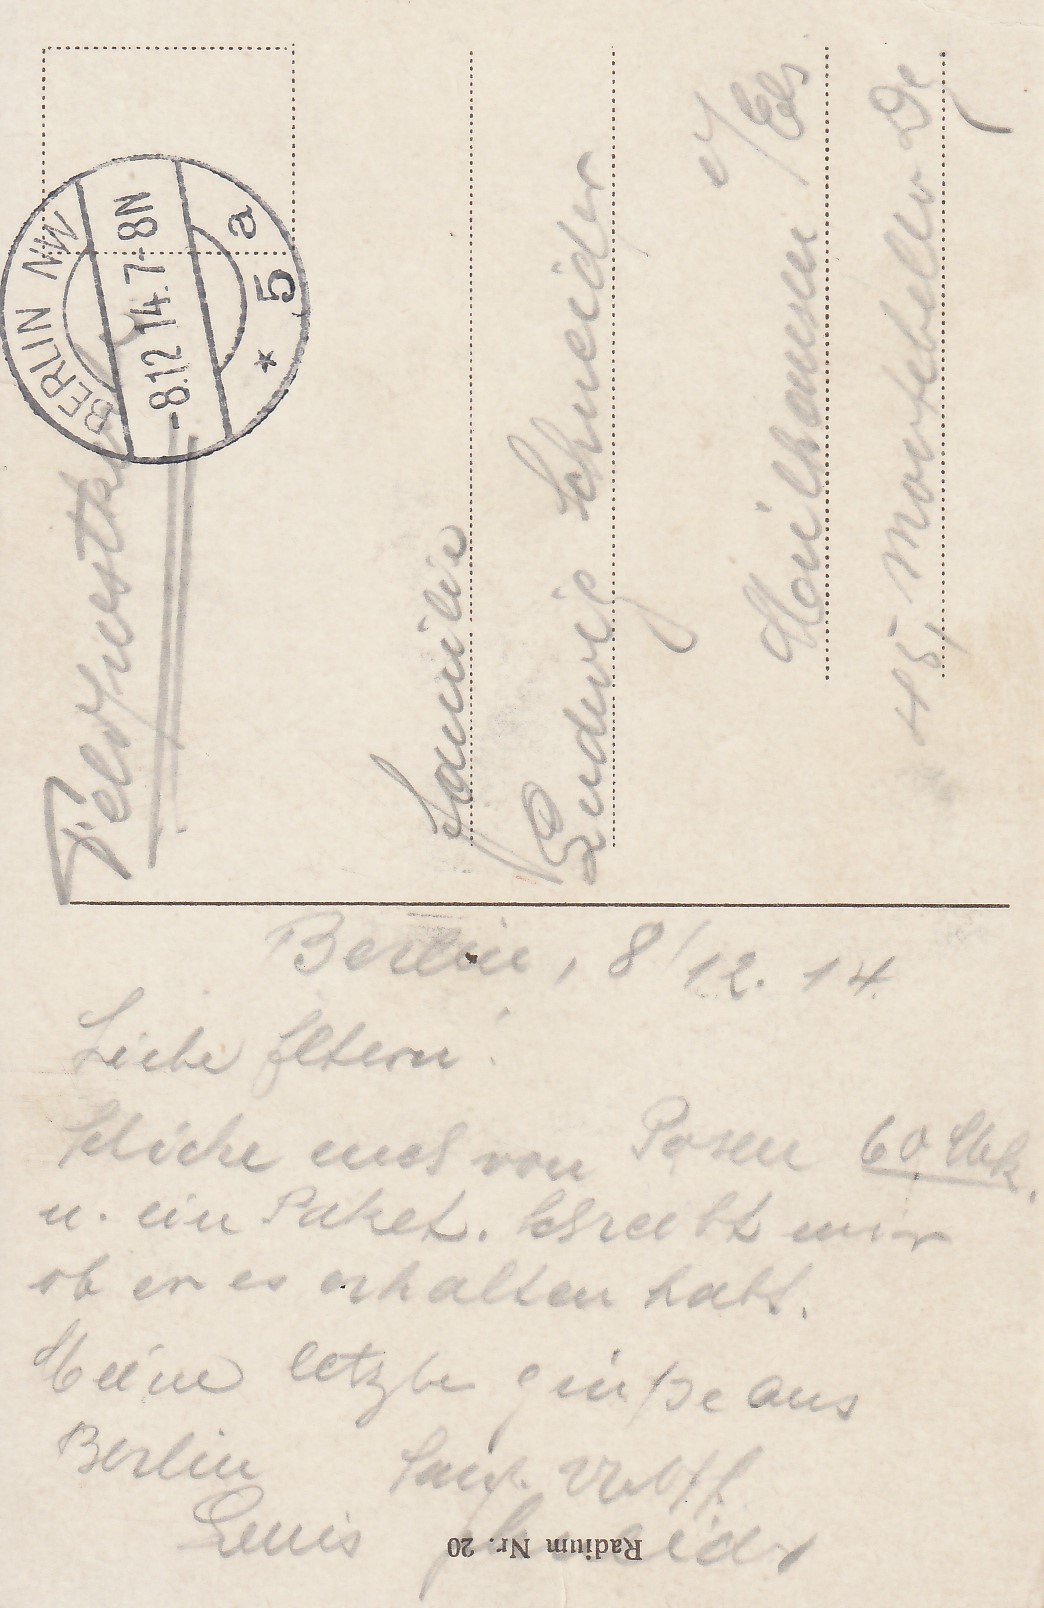 Feldpostk
BERLIN NW
-8.12.14.7-8N
* 5 a
Familie
Ludwig Schneider
Mülhausen i/Els
45, Montebello
Berlin, 8/12. 14.
Liebe Eltern!
Schicke euch von Posen 60 Mk.
u. ein Paket. Schreibt mir
ob er es erhalten habt.
Meine letzte grüße aus
Berlin
Louis Schneider
Radium Nr. 20